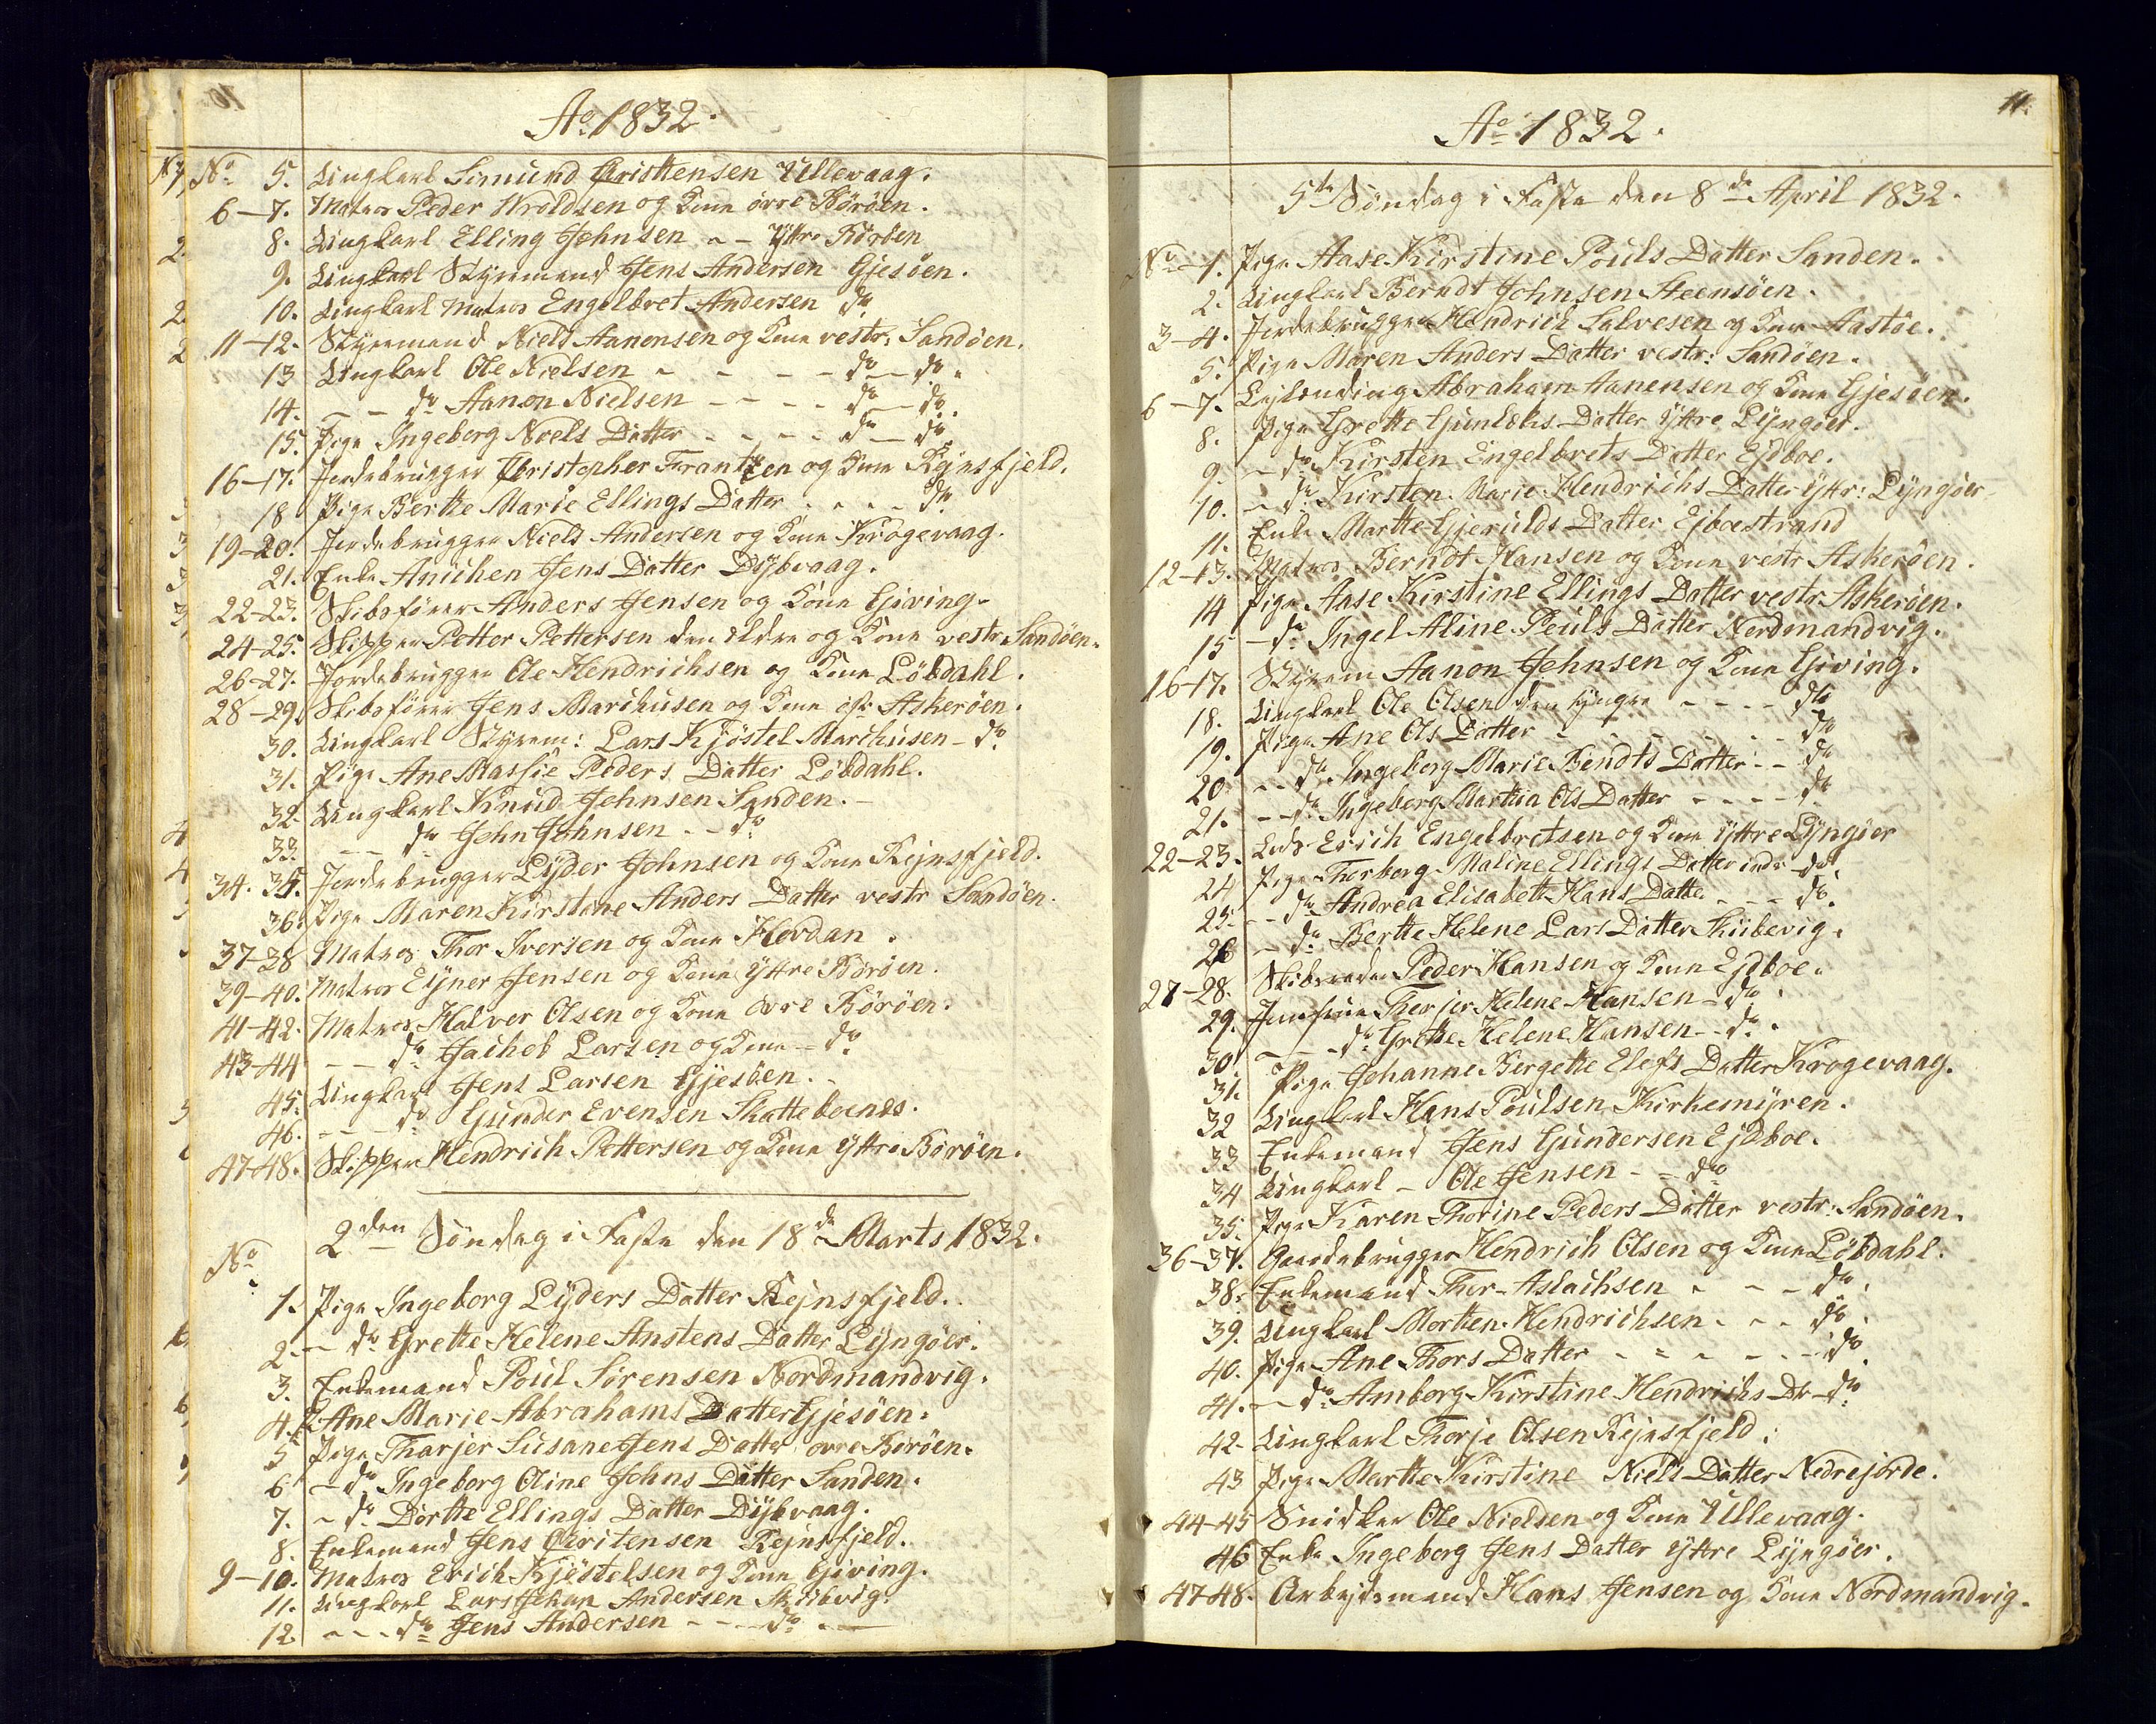 Ao 1832.
No 5. Ungkarl Simund Christensen Ullevaag.
6-7. Matros Peder Wroldsen og Kone øvre Børøen.
8. Ungkarl Elling Johnsen - - Yttre Børøen
9. Ungkarl Styremand Jens Andersen Gjesøen.
10. Ungkarl Matros Engelbret Andersen do
11-12. Styremand Niels Aanensen og Kone vestr: Sandøen.
13 Ungkarl Ole Nielsen - - - - do - do.
14. - - do Aanon Nielsen - - - - do - do.
15. Pige Ingeborg Niels Datter - - - - do - do.
16-17. Jordebrugger Christopher Frantzen og Kone Rejnsfjeld.
18 Pige Berthe Marie Ellings Datter - - - - do
19-20. Jordebrugger Niels Andersen og Kone Krogevaag.
21. Enke Anichen Jens Datter Dybvaag.
22-23. Skibsfører Anders Jensen og Kone Giving.
24-25. Skipper Petter Pettersen den eldre og Kone vestr. Sandøen.
26-27. Jordebrugger Ole Hendrichsen og Kone Løbdahl.
28-29. Skibsfører Jens Marchusen og Kone østr Askerøen.
30. Ungkarl Styrem: Lars Kjøstel Marchusen - do
31. Pige Ane Massie Peders Datter Løbdahl.
32. Ungkarl Knud Johnsen Sanden.
33. - - do John Johnsen - - do
34. 35. Jordebrugger Lyder Johnsen og Kone Rejnsfjeld.
36. Pige Maren Kirstine Anders Datter vestr Sandøen.
37-38 Matros Thor Iversen og Kone Hovdan.
39-40. Matros Ejner Jensen og Kone Yttre Børøen.
41-42. Matros Halvor Olsen og Kone øvre Børøen.
43-44 - - do Jachob Larsen og Kone - do
45. Ungkarl Jens Larsen Gjesøen.
46. - - - do Gunder Evensen Skatteboends.
47-48. Skipper Hendrich Pettersen og Kone Yttre Børøen.
2den Søndag i Faste den 18de Marts 1832.
No
1. Pige Ingeborg Lyders Datter Rejnsfjeld.
2. - do Grethe Helene Anstens Datter Lyngøer.
3. Enkemand Poul Sørensen Nordmandvig.
4. P. Ane Marie Abrahams Datter Gjesøen.
5 Pige Tharjer Susane Jens Datter øvre Børøen.
6 - do Ingeborg Oline Johns Datter Sanden.
7. - do Dorthe Ellings Datter Dybvaag.
8. Enkemand Jens Christensen Rejnsfjeld.
9-10. Matros Erich Kjøstelsen og Kone Giving.
11. Ungkarl Lars Johan Andersen Skibvig.
12. - - - do Jens Andersen - - - do
11.
Ao 1832.
5te Søndag i Faste den 8de April 1832.
No 1. Pige Aase Kirstine Pouls Datter Sanden.
2. Ungkarl Berndt Johnsen Steensøen.
3-4. Jordebrugger Hendrich Salvesen og Kone Aastøe.
5. Pige Maren Anders Datter vestr: Sandøen.
6-7. Lejlending Abraham Aanensen og Kone Gjesøen.
8. Pige Grethe Gunleks Datter Yttre Lyngøer.
9. - do Kirsten Engelbrets Datter Ejdboe.
10. - do Kirsten Marie Hendrichs Datter Yttr: Lyngøer
11. Enke Marthe Gjerulds Datter Ejboestrand
12-13. Matros Berndt Hansen og Kone vestr Askerøen.
14 Pige Aase Kirstine Ellings Datter vestr Askerøen.
15 - do Ingel Aline Pouls Datter Nordmandvig.
16-17. Styrem Aanon Johnsen og Kone Giving.
18. Ungkarl Ole Olsen den yngre - - - - do
19. Pige Ane Ols Datter - - - - do
20. - - do Ingeborg Marie Bendts Datter - - do
21. - - do Ingeborg Marthia Ols Datter - - - - do
22-23. Lods Erich Engelbretsen og Kone Yttre Lyngøer
24 Pige Thorborg Maline Ellings Datter indr do.
25. - - do Andrea Elisabeth Hans Datter - - - do.
26 - do Berthe Helene Lars Datter Skibevig.
27-28. Skibsreder Peder Hansen og Kone Ejdboe.
29. Jomfrue Therjer Helene Hansen - do.
30 - - - do Grethe Helene Hansen - - do.
31. Pige Johanne Bergethe Elefs Datter Krogevaag.
32 Ungkarl Hans Poulsen Kirkemyren.
33 Enkemand Jens Gundersen Ejdboe.
34 Ungkarl - Ole Jensen - - do
35. Pige Karen Thorine Peders Datter vestr: Sandøen.
36-37. Gaardebrugger Hendrich Olsen og Kone Løbdahl.
38. Enkemand Thor Aslachsen - - - do.
39. Ungkarl Morthen Hendrichsen - - - do.
40. Pige Ane Thors Datter - - - - - - do
41. - do Amborg Kirstine Hendrichs Dr - do
42. Ungkarl Thorje Olsen Rejnsfjeld.
43 Pige Marthe Kirstine Niels Datter Nedrejorde.
44-45 Snidker Ole Nielsen og Kone Ullevaag.
46 Enke Ingeborg Jens Datter Yttre Lyngøer.
47-48. Arbejdsmand Hans Jensen og Kone Nordmandvig.